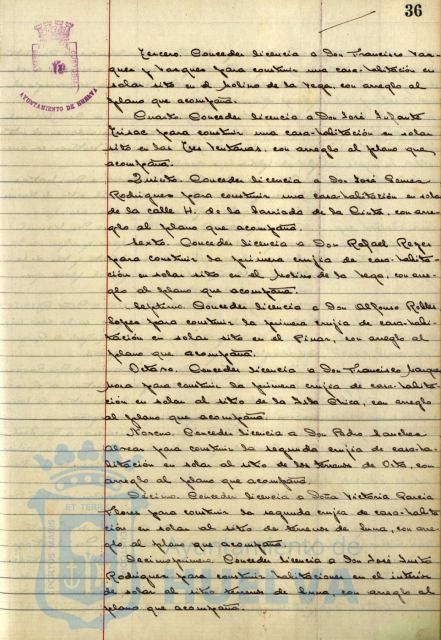 36
AYUNTAMIENTO DE HUELVA
Tercero. Conceder licencia a Don Francisco Vaz-
ques y Vasques para construir una casa-habitación en
solar sito en el Molino de la Vega, con arreglo al
plano que acompaña.
Cuarto. Conceder licencia a Don José Infante
para construir una casa-habitación en solar
sito en las Tres Ventanas, con arreglo al plano que
acompaña.
Quinto. Conceder licencia a Don José Gomez
Rodriguez para construir una casa-habitación en solar
de la calle H. de la barriada de la Cinta, con arre-
glo al plano que acompaña.
Sexto. Conceder licencia a Don Rafael Reyes
para construir la primera crujía de casa-habita-
ción en solar sito en el Molino de la Vega, con arre-
glo al plano que acompaña.
Septimo. Conceder licencia a Don Alfonso Robles
Lopez para construir la primera crujía de casa-habi-
tación en solar sito en el Pinar, con arreglo al
plano que acompaña.
Octavo. Conceder licencia a Don Francisco Marquez
Mora para construir la primera crujía de casa-habita-
ción en solar al sitio de la Isla Chica, con arreglo
al plano que acompaña.
Noveno. Conceder licencia a Don Pedro Sanchez
para construir la segunda crujía de casa-ha-
bitación en solar al sitio de los terrenos de Oita, con
arreglo al plano que acompaña.
Décimo. Conceder licencia a Doña Victoria Garcia
Flores para construir la segunda crujía de casa-habita-
ción en solar al sitio de terrenos de Luna, con arre-
glo al plano que acompaña.
Decimoprimero. Conceder licencia a Don José
Rodriguez para construir habitaciones en el interior
de solar al sitio terrenos de Luna, con arreglo al
plano que acompaña.
Ayuntamiento de
HUELVA